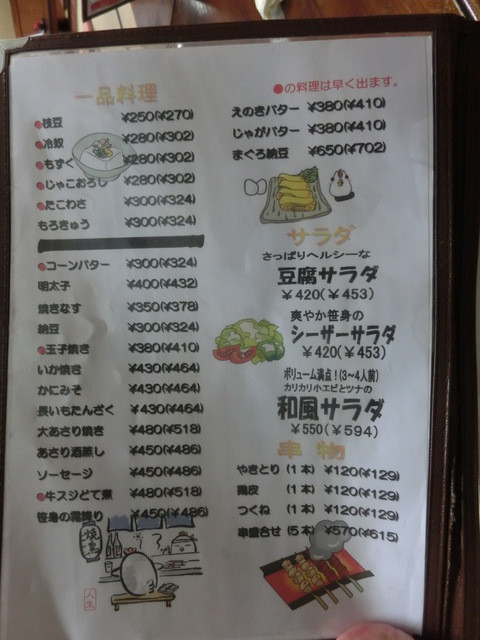 一品料理
●枝豆 ¥250(¥270)
●冷奴 ¥280(¥302)
●もずく ¥280(¥302)
●じゃこおろし ¥280(¥302)
●たこわさ ¥300(¥324)
もろきゅう ¥300(¥324)
●コーンバター ¥300(¥324)
明太子 ¥400(¥432)
焼きなす ¥350(¥378)
納豆 ¥300(¥324)
●玉子焼き ¥380(¥410)
いか焼き ¥430(¥464)
かにみそ ¥430(¥464)
長いもたんざく ¥430(¥464)
大あさり焼き ¥480(¥518)
あさり酒蒸し ¥450(¥486)
ソーセージ ¥450(¥486)
●牛スジどて煮 ¥480(¥518)
笹身の霜降り ¥450(¥486)
焼鳥
人生
●の料理は早く出ます。
えのきバター ¥380(¥410)
じゃがバター ¥380(¥410)
まぐろ納豆 ¥650(¥702)
サラダ
さっぱりヘルシーな
豆腐サラダ
¥420(¥453)
爽やか笹身の
シーザーサラダ
¥420(¥453)
ボリューム満点!(3~4人前)
カリカリ小エビとツナの
和風サラダ
¥550(¥594)
串物
やきとり (1本) ¥120(¥129)
鶏皮 (1本) ¥120(¥129)
つくね (1本) ¥120(¥129)
串盛合せ (5本) ¥570(¥615)